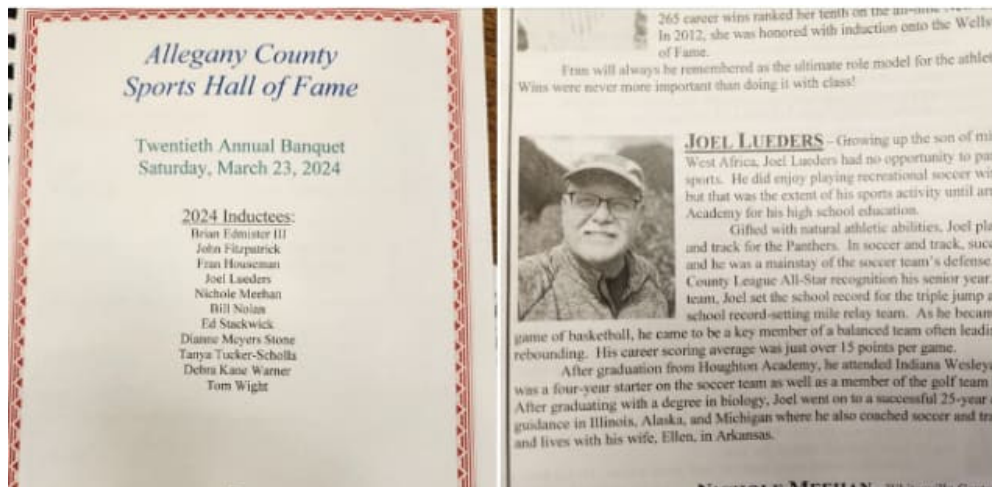 Allegany County
Sports Hall of Fame
Twentieth Annual Banquet
Saturday, March 23, 2024
2024 Inductees:
Brian Edmister III
John Fitzpatrick
Fran Houseman
Joel Lueders
Nichole Meehan
Bill Nolan
Ed Stuckwick
Dianne Meyers Stone
Tanya Tucker-Scholla
Debra Kane Warner
Tom Wight
265 career wins ranked her tenth on the
In 2012, she was honored with induction onto the Wells
of Fame.
Fran will always be remembered as the ultimate role model for the athlet
Wins were never more important than doing it with class!
JOEL LUEDERS – Growing up the son of mi
West Africa, Joel Lueders had no opportunity to par
sports. He did enjoy playing recreational soccer wit
but that was the extent of his sports activity until arr
Academy for his high school education.
Gifted with natural athletic abilities, Joel pla
and track for the Panthers. In soccer and track, succ
and he was a mainstay of the soccer team's defense
County League All-Star recognition his senior year.
team, Joel set the school record for the triple jump a
school record-setting mile relay team. As he became
game of basketball, he came to be a key member of a balanced team often leadi
rebounding. His career scoring average was just over 15 points per game.
After graduation from Houghton Academy, he attended Indiana Wesleya
was a four-year starter on the soccer team as well as a member of the golf team
After graduating with a degree in biology, Joel went on to a successful 25-year
guidance in Illinois, Alaska, and Michigan where he also coached soccer and tra
and lives with his wife, Ellen, in Arkansas.